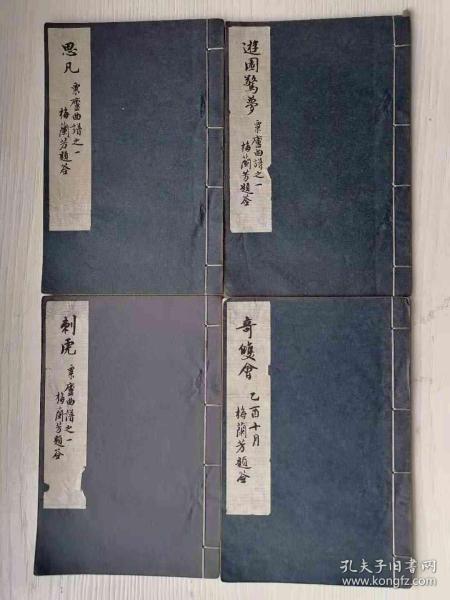 思凡
粟廬曲譜之一
梅蘭芳題簽
遊園驚夢
粟廬曲譜之一
梅蘭芳題簽
刺虎
粟廬曲譜之一
梅蘭芳題簽
奇雙會
乙酉十月
梅蘭芳題簽
孔夫子旧书网
www.kongfz.com